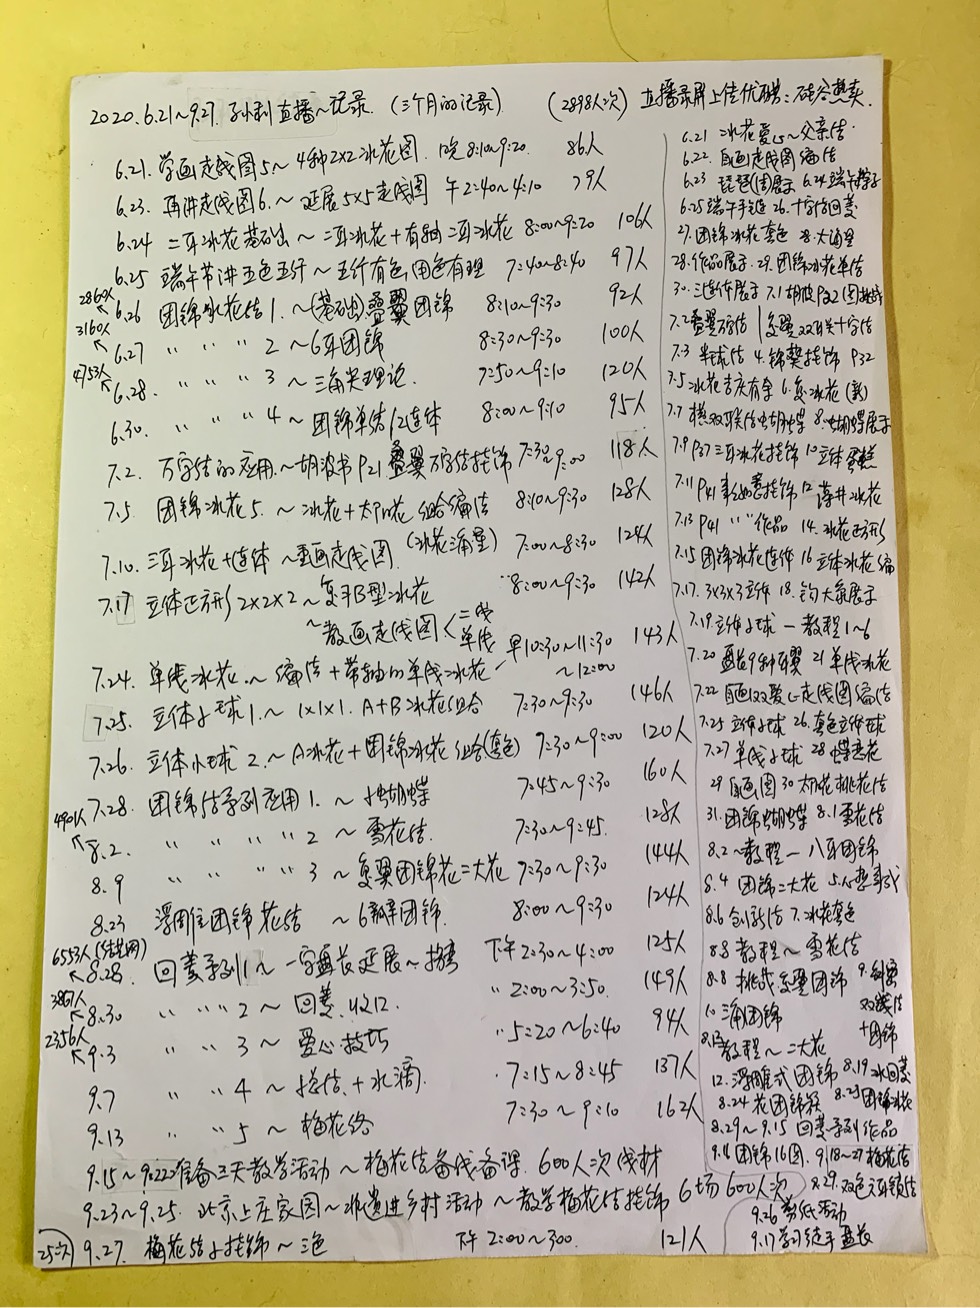 2020.6.21~9.27. 直播~记录. (三个月的记录) (2898人次) 直播录屏上传优酷:
6.21. 学画走线图5~4种2×2冰花图. 晚8:10~9:20. 86人
6.23. 再讲走线图6.~延展5×5走线图 午2:40~4:10 79人
6.24 二耳冰花基础~二耳冰花+有轴二耳冰花 8:00~9:20 106人
6.25 端午节讲五色五行~五行有色,用色有理 7:40~8:40 97人
2860人
6.26 团锦冰花结1.~(基础)叠翼团锦 8:10~9:30 92人
3160人
6.27 〃 〃 〃 2~6耳团锦 8:30~9:30 100人
4753人
6.28. 〃 〃 〃 3~三角尖理论. 7:50~9:10 120人
6.30. 〃 〃 〃 4~团锦单结/2连体 8:00~9:10 95人
7.2. 万字结的应用.~胡波书P21叠翼万字结挂饰 7:30~9:00 118人
7.5. 团锦冰花5.~冰花+太阳花组合编结 8:10~9:30 128人
7.10. 三耳冰花+连体~画走线图 7:00~8:30 124人
7.17 立体正方形2×2×2~复平B型冰花 8:00~9:30 142人
~教画走线图<二线 单线
早10:30~11:30 ~12:00 143人
7.24. 单线冰花.~编结+带轴的单线冰花
7.25. 立体小球1.~1×1×1. A+B冰花组合 7:30~9:30 146人
7.26. 立体小球2.~A冰花+团锦冰花组合(套色) 7:30~9:00 120人
7.28. 团锦结系列应用1.~小蝴蝶 7:45~9:30 160人
4901人
8.2. 〃 〃 〃 〃 2~雪花结. 7:30~9:45. 128人
8.9 〃 〃 〃 〃 3~复翼团锦花二大花 7:30~9:30 144人
8.23 浮雕住团锦花结~6瓣团锦. 8:00~9:30 124人
6553人
8.28. 回菱系列1~一字盘长延展~ 下午2:30~4:00 125人
3867人
8.30 〃 〃 〃 2~回菱.收口. 〃 2:00~3:50. 149人
2356人
9.3 〃 〃 3~爱心技巧 〃 5:20~6:40 94人
9.7 〃 〃 4~搭结+水滴. 7:15~8:45 137人
9.13 〃 〃 5~梅花络 7:30~9:10 162人
9.15~9.22准备三天教学活动~梅花结备线备课. 600人次线材
9.23~9.25. 北京上庄家园~非遗进乡村活动~教学梅花结挂饰 6场600人次
25次 9.27. 梅花结小挂饰~三色 下午2:00~3:00. 121人
6.21 冰花爱心~父亲结.
6.22. 自画走线图编结
6.23 琵琶(团)展示 6.24端午粽子
6.25端午手链 26.十字结回菱
27.团锦冰花套色 28.
28.作品展示. 29.团锦冰花单结
30.三连体展示 7.1胡波P22(图挑战)
7.2叠翼万字结|复翼双联十字结
7.3 半球结 4.锦葵挂饰 P32
7.5冰花吉庆有余 6.复冰花(新)
7.7 横双联结蝴蝶 8.蝴蝶展示
7.9 P37三耳冰花挂饰 10立体蛋糕
7.11 P41事如意挂饰 12 藻井冰花
7.13 P41 〃 〃作品 14.冰花正方形
7.15团锦冰花连体 16立体冰花编
7.17. 3×3×3立体 18. 展示
7.19.立体小球一教程1~6
7.20 9种耳翼 21单线冰花
7.22自画双爱心走线图编结
7.25立体小球 26.套色立体球
7.27 单线小球 28蝶恋花
29自画图 30 桃花结
31.团锦蝴蝶 8.1雪花结
8.2~教程一八耳团锦
8.4 团锦二大花
8.6创新结 7.冰花套色
8.8 教程~雪花结
8.8 挑战复翼团锦
双钱结+团锦
10 三角团锦
教程~二大花
12.浮雕式团锦 8.19冰回菱
8.24花团锦簇 8.25团锦冰花
8.29~9.15 回菱系列作品
9.16团锦16图. 9.18~27梅花结
8.29.双色六耳锁结
9.26 剪纸活动
9.17学习徒手盘长